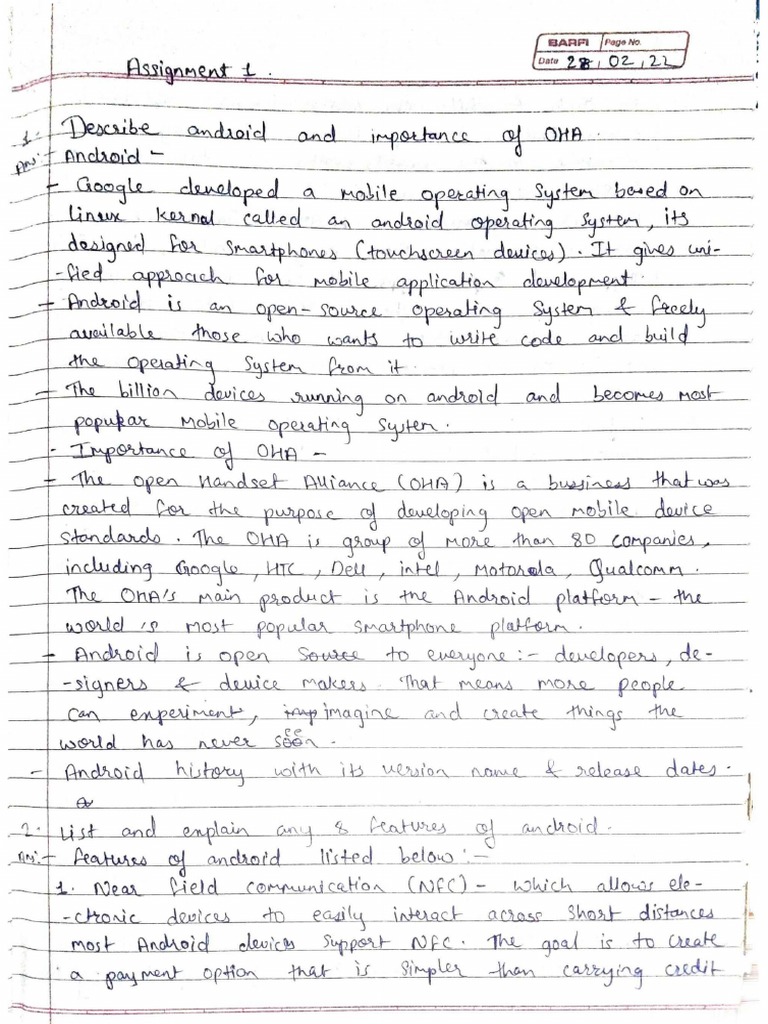 BARFI Page No.
Date 28, 02, 22
Assignment 1.
1. Describe android and importance of OHA.
Ans:- Android -
- Google developed a mobile operating system based on
linux kernal called an android operating system, its
designed for smartphones (touchscreen devices). It gives uni-
-fied approach for mobile application development.
- Android is an open-source operating system & freely
available those who wants to write code and build
the operating system from it.
- The billion devices running on android and becomes most
popular mobile operating system.
- Importance of OHA -
- The open Handset Alliance (OHA) is a bussiness that was
created for the purpose of developing open mobile device
standards. The OHA is group of more than 80 companies,
including Google, HTC, Dell, intel, Motorola, Qualcomm.
The OHA's main product is the Android platform - the
world's most popular smartphone platform.
- Android is open source to everyone:- developers, de-
-signers & device makers. That means more people
can experiment, imagine and create things the
world has never seen.
- Android history with its version name & release dates.
2. List and explain any 8 features of android.
Ans:- features of android listed below:-
1. Near field communication (NFC) - which allows ele-
-ctronic devices to easily interact across short distances
most Android devices support NFC. The goal is to create
a payment option that is simpler than carrying credit